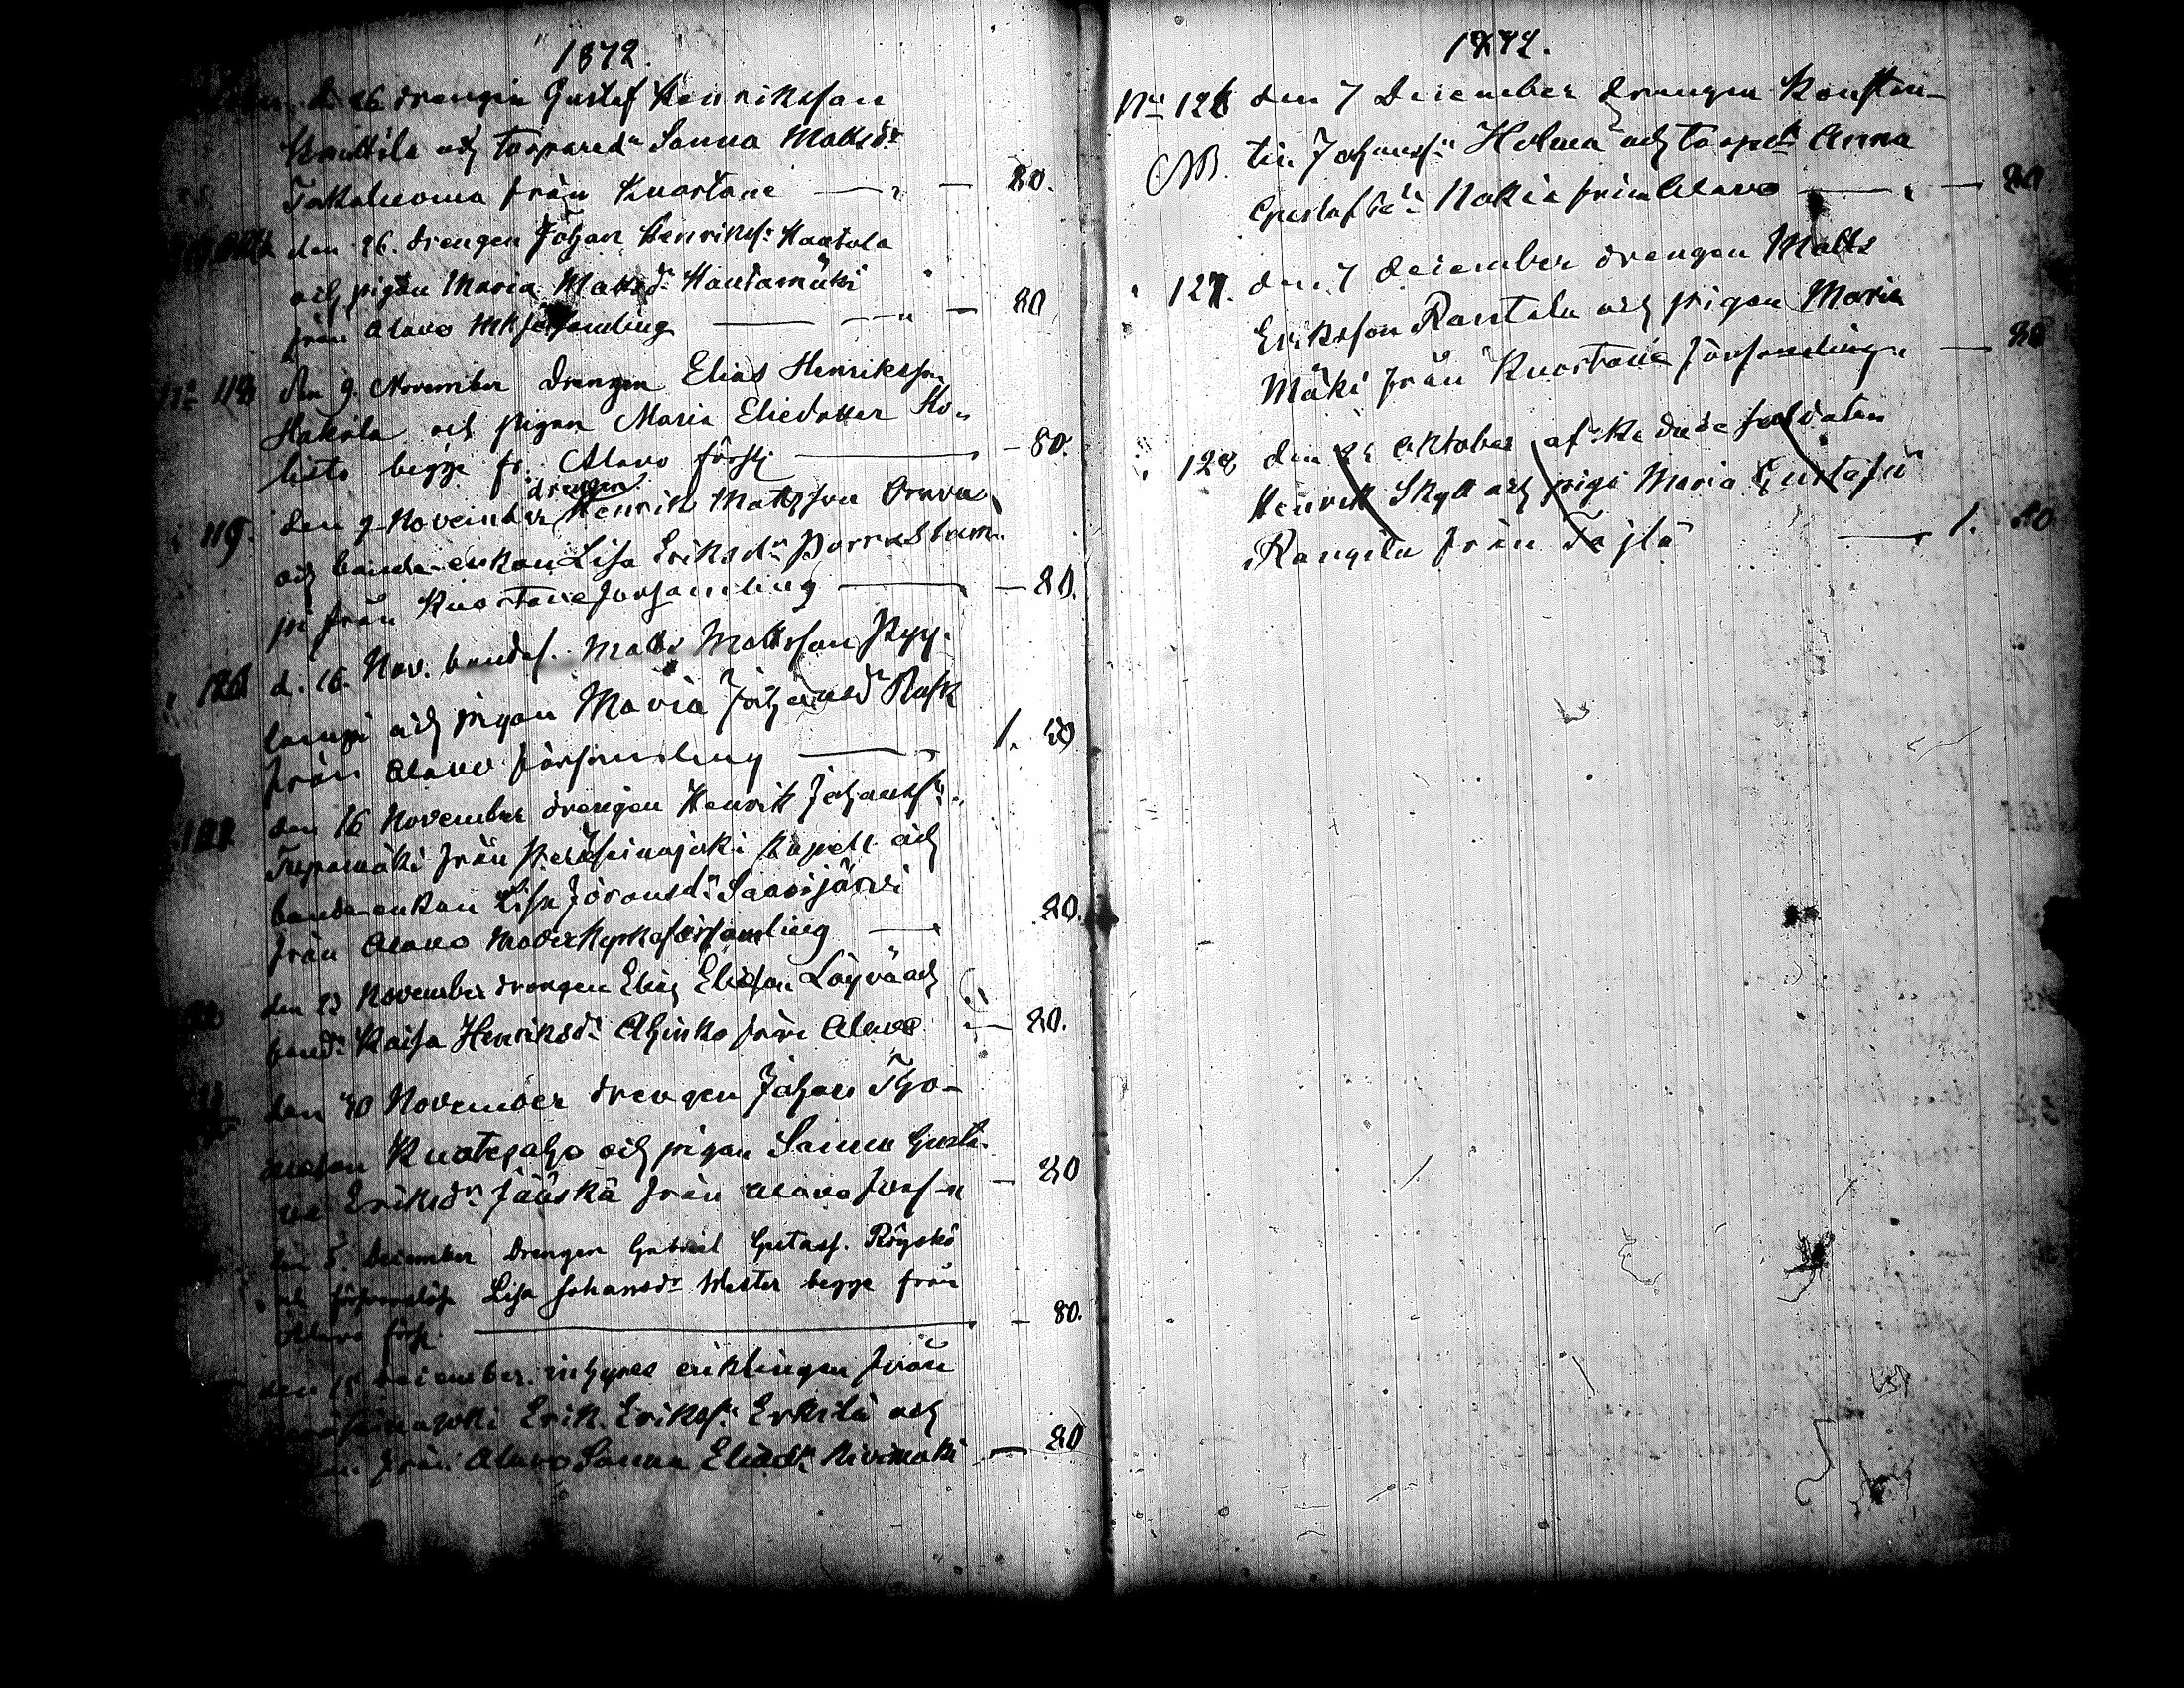 1872.
d. 26 drengen Gustaf Henriksson
Knuttila och torpared:r Sanna Mattsd:r
Takaluoma från Kuortane — „ — 80.
den 26. drengen Johan Henrikss: Kaatola
och pigan Maria Mattsd:r Hautamäki
från Alavo Mkförsamling — „ — 80
N:o 118 den 9. November drengen Elias Henriksson
Hakola och pigan Maria Eliedotter Ho-
listo begge fr. Alavo förs — 80.
drengen
119. den 9 November Henrik Mattsson
och bonde-enkan Lisa Eriksd:r Porrastam-
pi från Kuortane församling — 80.
120 d. 16. Nov. bondes. Matts Mattsson Pyy-
lampi och pigan Maria Johansd:r Rask
från Alavo församling — 1. 50
den 16 November drengen Henrik Johanss:n
Tupamäki från Peräseinäjoki kapell och
bonde-enkan Lisa Göransd:r Saarijärvi
från Alavo Moderkyrkoförsamling — 80.
den 23 November drengen Elias Eliasson Löyvä och
bond:r Kaisa Henriksd:r Ahinko från Alavo — 80.
den 30 November drengen Johan Tho-
masson Kuotesaho och pigan Sanna Gusta-
va Eriksd:r Jääskä från Alavo förs-g — 80
den 5. December drengen Gabriel Gustafs. Röyskö
och Lisa Johansd:r Wester begge från
Alavo förs. — 80.
den 15 December inhyses enklingen från
Peräseinäjoki Erik Erikss:n Erkilä och
från Alavo Sanna Eliaed:r Kivimäki — 80
1872.
N:o 126 den 7 December drengen Konstan-
NB. tin Johanss:n Holma och torpd:r Anna
Gustafsd:r Kokia från Alavo — „ — 80
„ 127. den 7 December drengen Matts
Eriksson Rantala och pigan Maria
Mäki från Kuortane församling — 80
„ 128 den oktober afskedade soldaten
Henrik Skytt och piga Maria Gustafsd:r
Rangila från — 1. 80